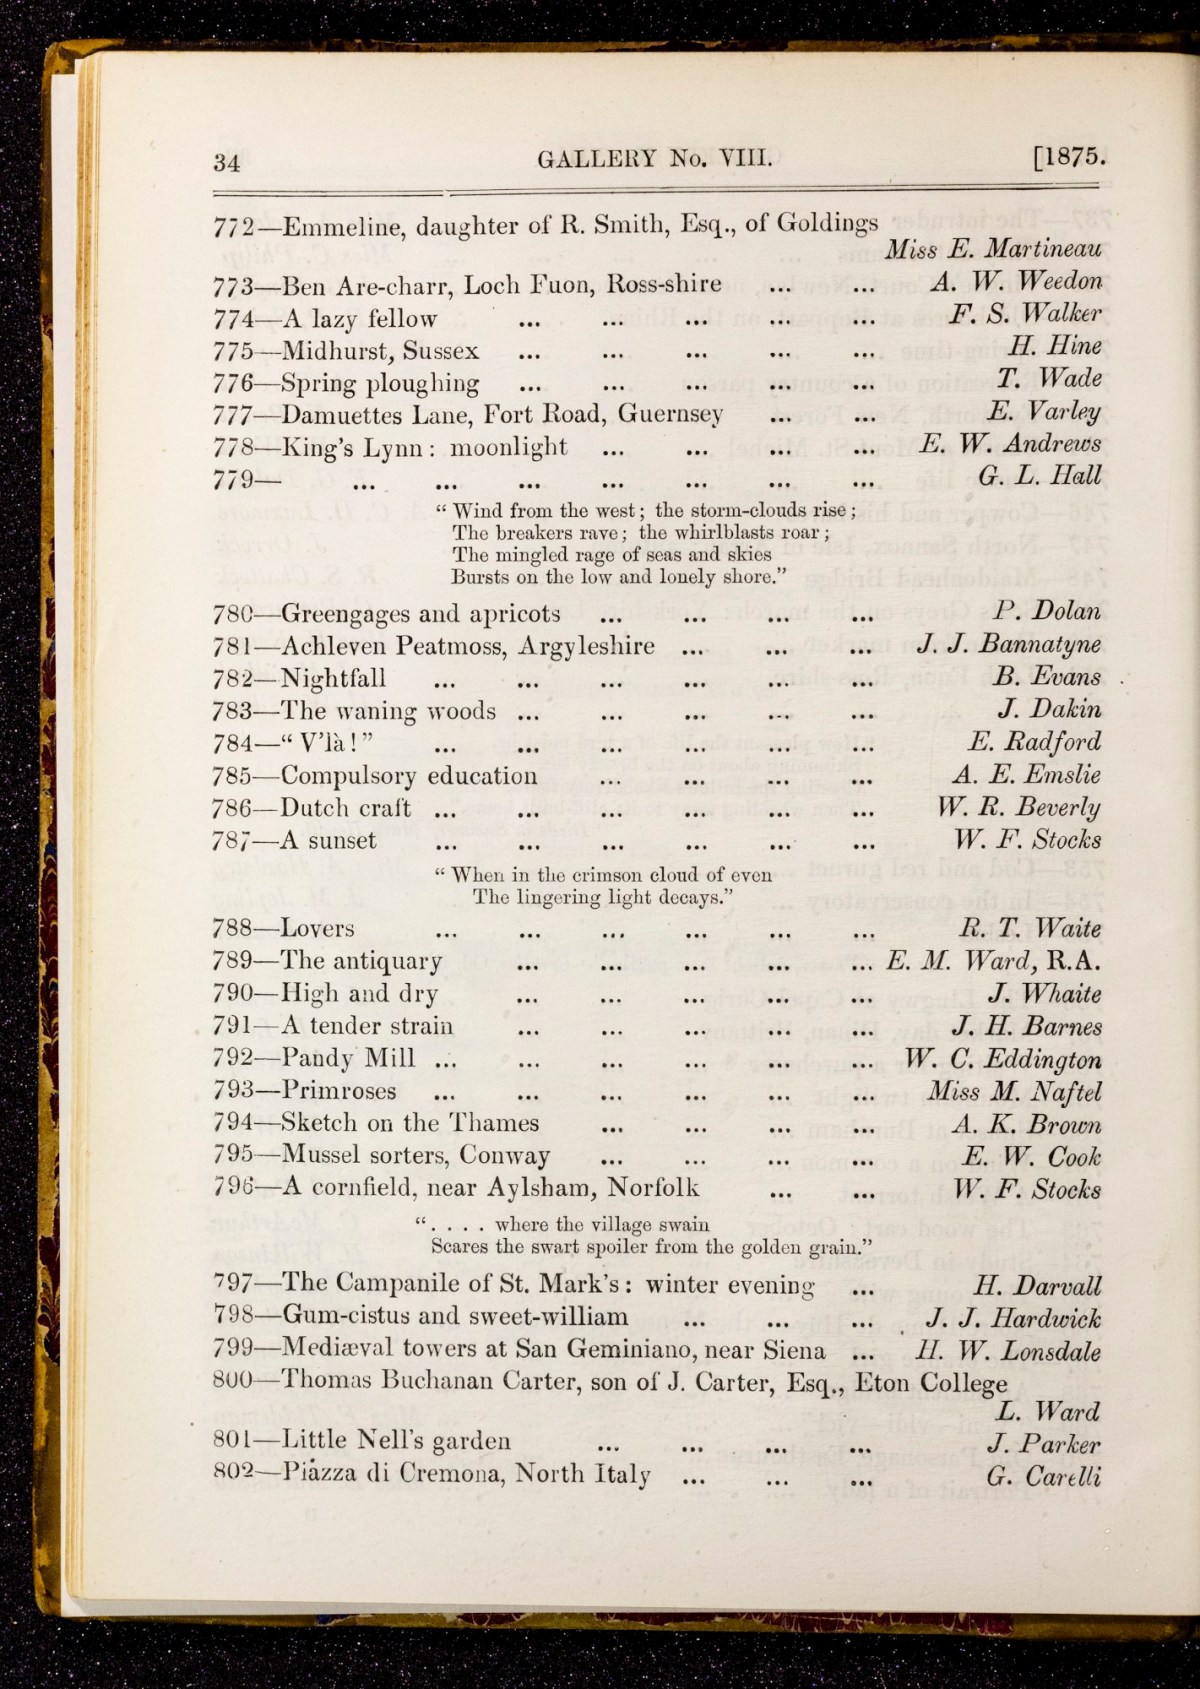 34 GALLERY No. VIII. [1875.
772—Emmeline, daughter of R. Smith, Esq., of Goldings
Miss E. Martineau
773—Ben Are-charr, Loch Fuon, Ross-shire ... ... A. W. Weedon
774—A lazy fellow ... ... ... ... ... F. S. Walker
775—Midhurst, Sussex ... ... ... ... ... H. Hine
776—Spring ploughing ... ... ... ... ... T. Wade
777—Damuettes Lane, Fort Road, Guernsey ... ... E. Varley
778—King's Lynn: moonlight ... ... ... ... E. W. Andrews
779— ... ... ... ... ... ... ... G. L. Hall
“Wind from the west; the storm-clouds rise;
The breakers rave; the whirlblasts roar;
The mingled rage of seas and skies
Bursts on the low and lonely shore.”
780—Greengages and apricots ... ... ... ... P. Dolan
781—Achleven Peatmoss, Argyleshire ... ... ... J. J. Bannatyne
782—Nightfall ... ... ... ... ... ... B. Evans
783—The waning woods ... ... ... ... ... J. Dakin
784—“V'là!” ... ... ... ... ... ... E. Radford
785—Compulsory education ... ... ... ... A. E. Emslie
786—Dutch craft ... ... ... ... ... ... W. R. Beverly
787—A sunset ... ... ... ... ... ... W. F. Stocks
“When in the crimson cloud of even
The lingering light decays.”
788—Lovers ... ... ... ... ... ... R. T. Waite
789—The antiquary ... ... ... ... ... E. M. Ward, R.A.
790—High and dry ... ... ... ... ... J. Whaite
791—A tender strain ... ... ... ... ... J. H. Barnes
792—Pandy Mill ... ... ... ... ... ... W. C. Eddington
793—Primroses ... ... ... ... ... ... Miss M. Naftel
794—Sketch on the Thames ... ... ... ... A. K. Brown
795—Mussel sorters, Conway ... ... ... ... E. W. Cook
796—A cornfield, near Aylsham, Norfolk ... ... W. F. Stocks
“. . . . where the village swain
Scares the swart spoiler from the golden grain.”
797—The Campanile of St. Mark's: winter evening ... H. Darvall
798—Gum-cistus and sweet-william ... ... ... J. J. Hardwick
799—Mediæval towers at San Geminiano, near Siena ... H. W. Lonsdale
800—Thomas Buchanan Carter, son of J. Carter, Esq., Eton College
L. Ward
801—Little Nell's garden ... ... ... ... J. Parker
802—Piazza di Cremona, North Italy ... ... ... G. Carelli